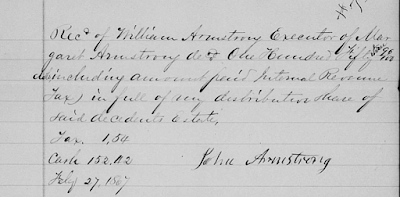 Recd of William Armstrong Executor of Mar
garet Armstrong decd One Hundred Fifty
including amount paid Internal Revenue
Tax) in full of my distributive share of
said decedents Estate,
Tax. 1,54
Cash 152.42 John Armstrong
Feby 27, 1867